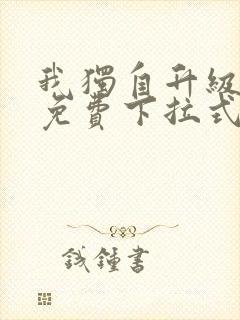 我獨自升級
免費下拉式
錢鍾書